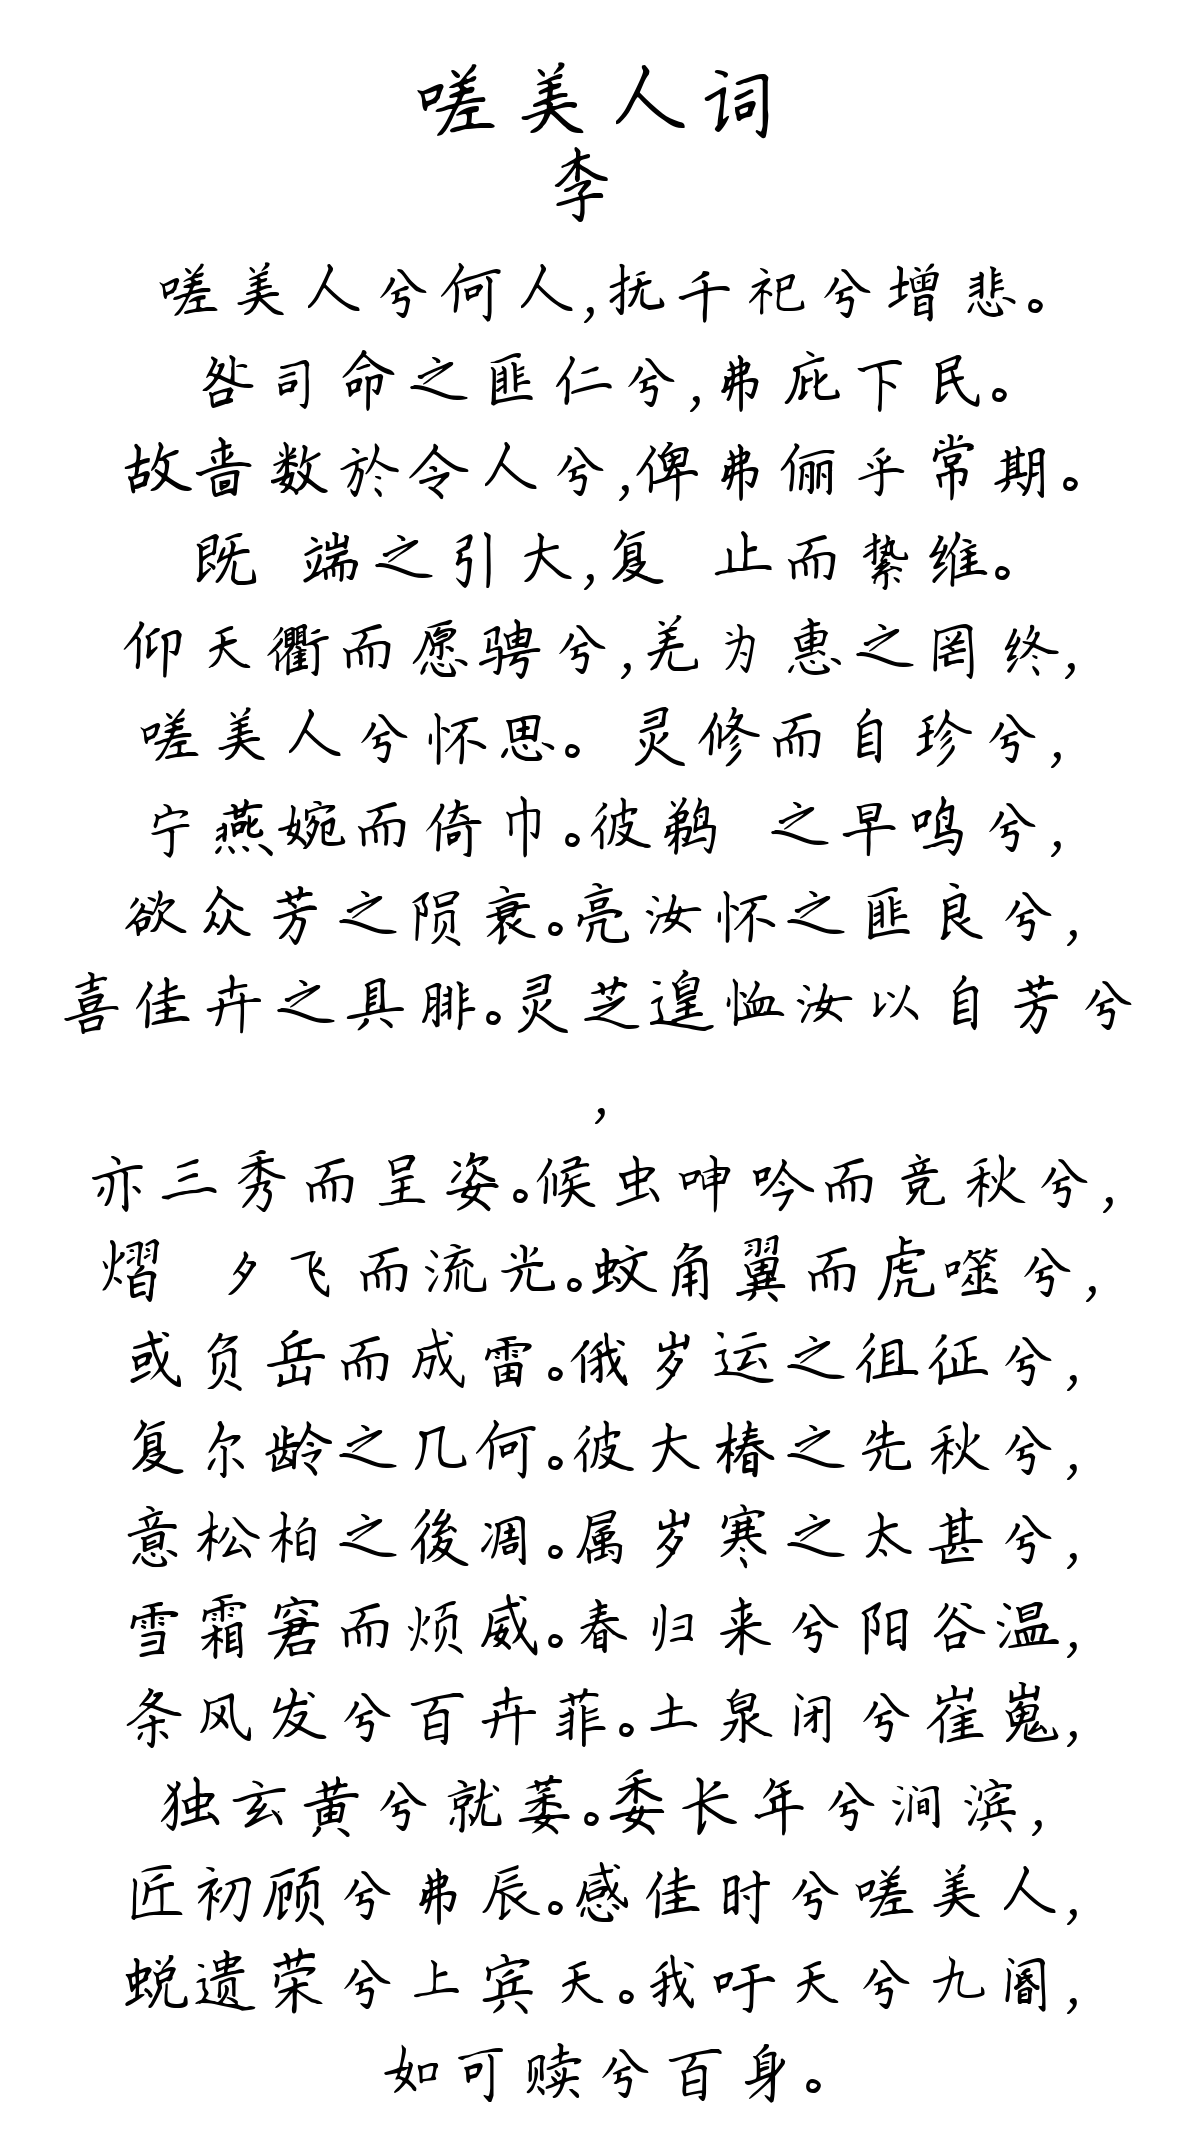 嗟美人词
李
嗟美人兮何人,抚千祀兮增悲。
咎司命之匪仁兮,弗庇下民。
故啬数於令人兮,俾弗俪乎常期。
既 端之引大,复 止而絷维。
仰天衢而愿骋兮,羌为惠之罔终,
嗟美人兮怀思。灵修而自珍兮,
宁燕婉而倚巾。彼鹈 之早鸣兮,
欲众芳之陨衰。亮汝怀之匪良兮,
喜佳卉之具腓。灵芝遑恤汝以自芳兮
,
亦三秀而呈姿。候虫呻吟而竞秋兮,
熠 夕飞而流光。蚊角翼而虎噬兮,
或负岳而成雷。俄岁运之徂征兮,
复尔龄之几何。彼大椿之先秋兮,
意松柏之後凋。属岁寒之太甚兮,
雪霜窘而烦威。春归来兮阳谷温,
条风发兮百卉菲。土泉闭兮崔嵬,
独玄黄兮就萎。委长年兮涧滨,
匠初顾兮弗辰。感佳时兮嗟美人,
蜕遗荣兮上宾天。我吁天兮九阍,
如可赎兮百身。